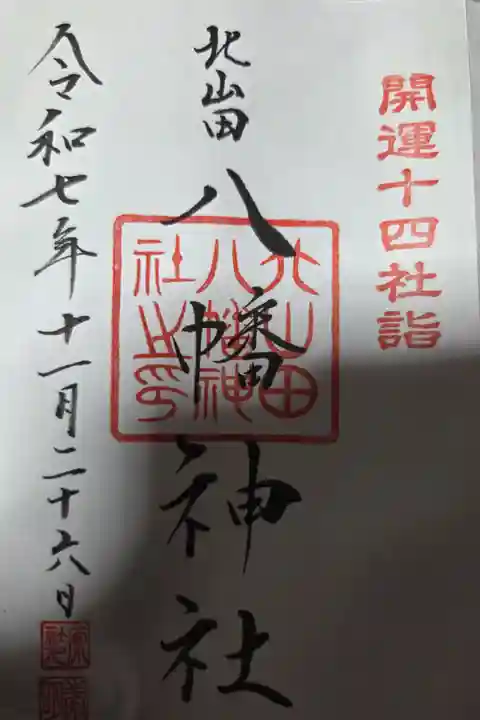 開運十四社詣
北山田
八幡神社
北山田
八幡神
社之印
令和七年十一月二十六日